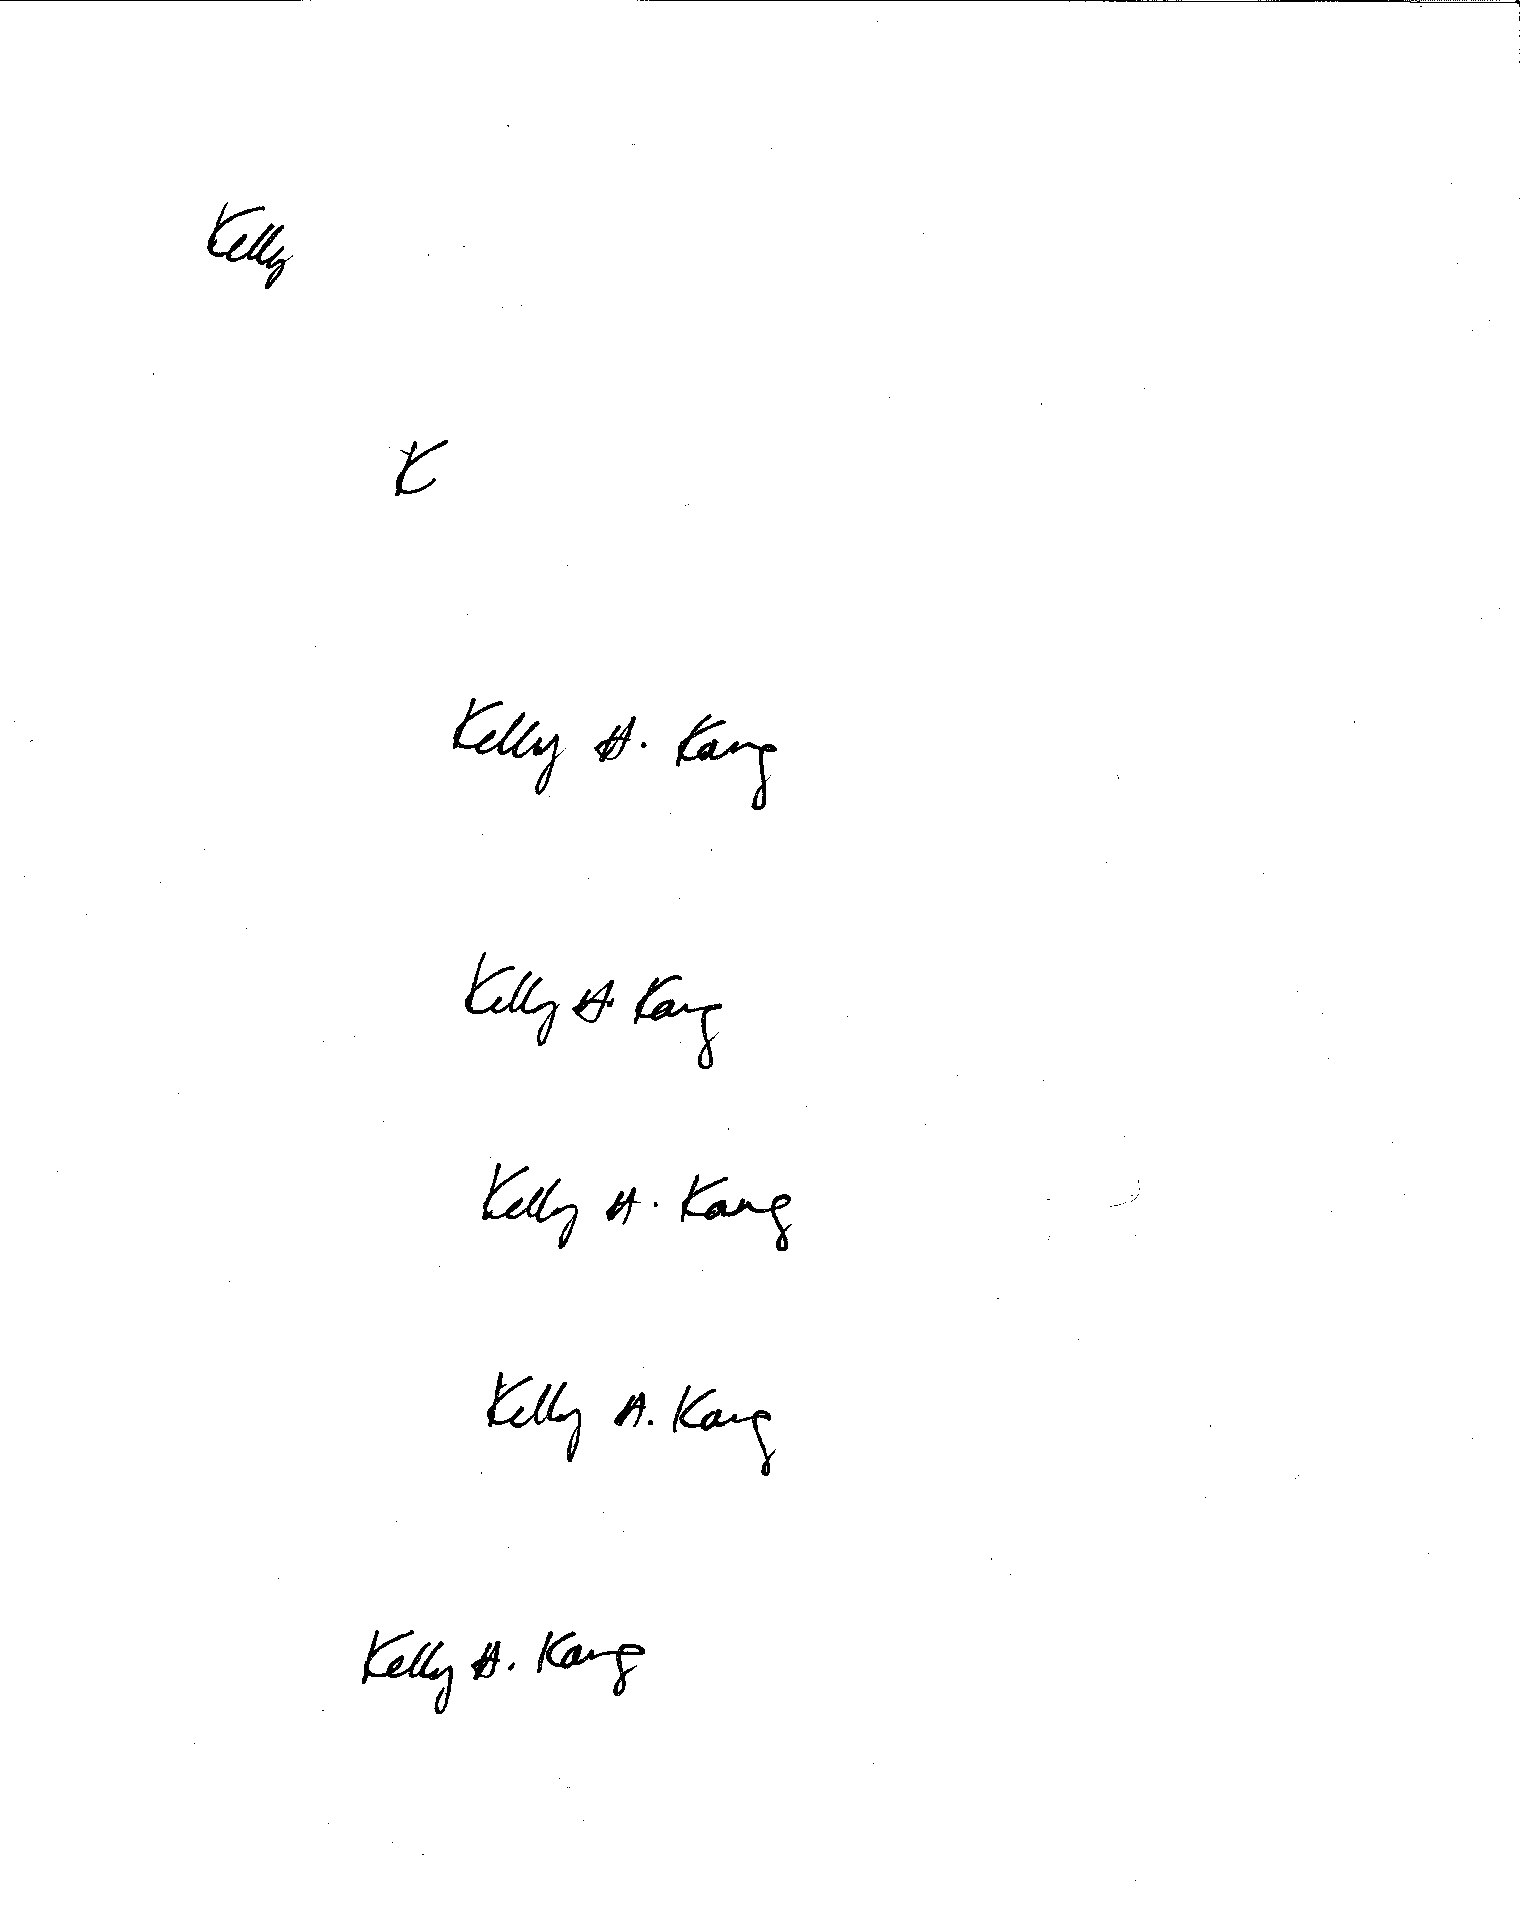 Kelly
K
Kelly A. Kang
Kelly A. Kang
Kelly A. Kang
Kelly A. Kang
Kelly A. Kang